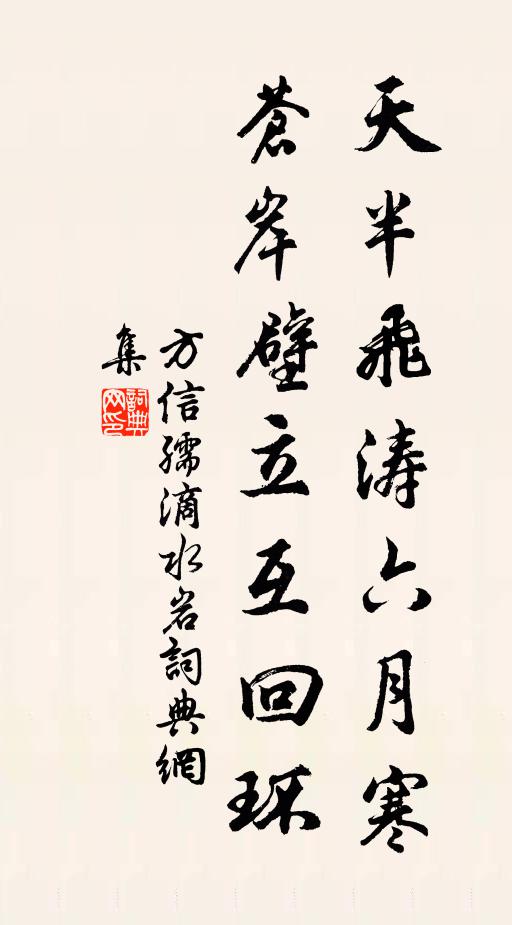 天半飛濤六月寒
蒼岸壁立互回环
方信孺滴水岩詞典網
集
詞典
网印